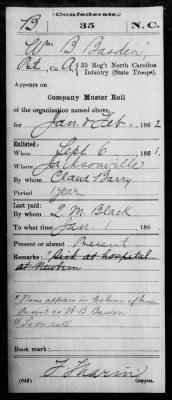 (Confederate.)
B 35 N.C.
Wm B Basden
Pvt, Co. A, 35 Reg't North Carolina
Infantry (State Troops).
Appears on
Company Muster Roll
of the organization named above,
for Jan & Feb, 1862
Enlisted:
When Sept 6, 1861.
Where Jacksonville
By whom Claud Barry
Period 1 year
Last paid:
By whom Q.M. Black
To what time Jan 1, 186
Present or absent Present
Remarks: Sick at hospital
at Newbern
Name appears in Column of Names
Present as W B Basden
So on roll
Book mark:
(642) Copyist.